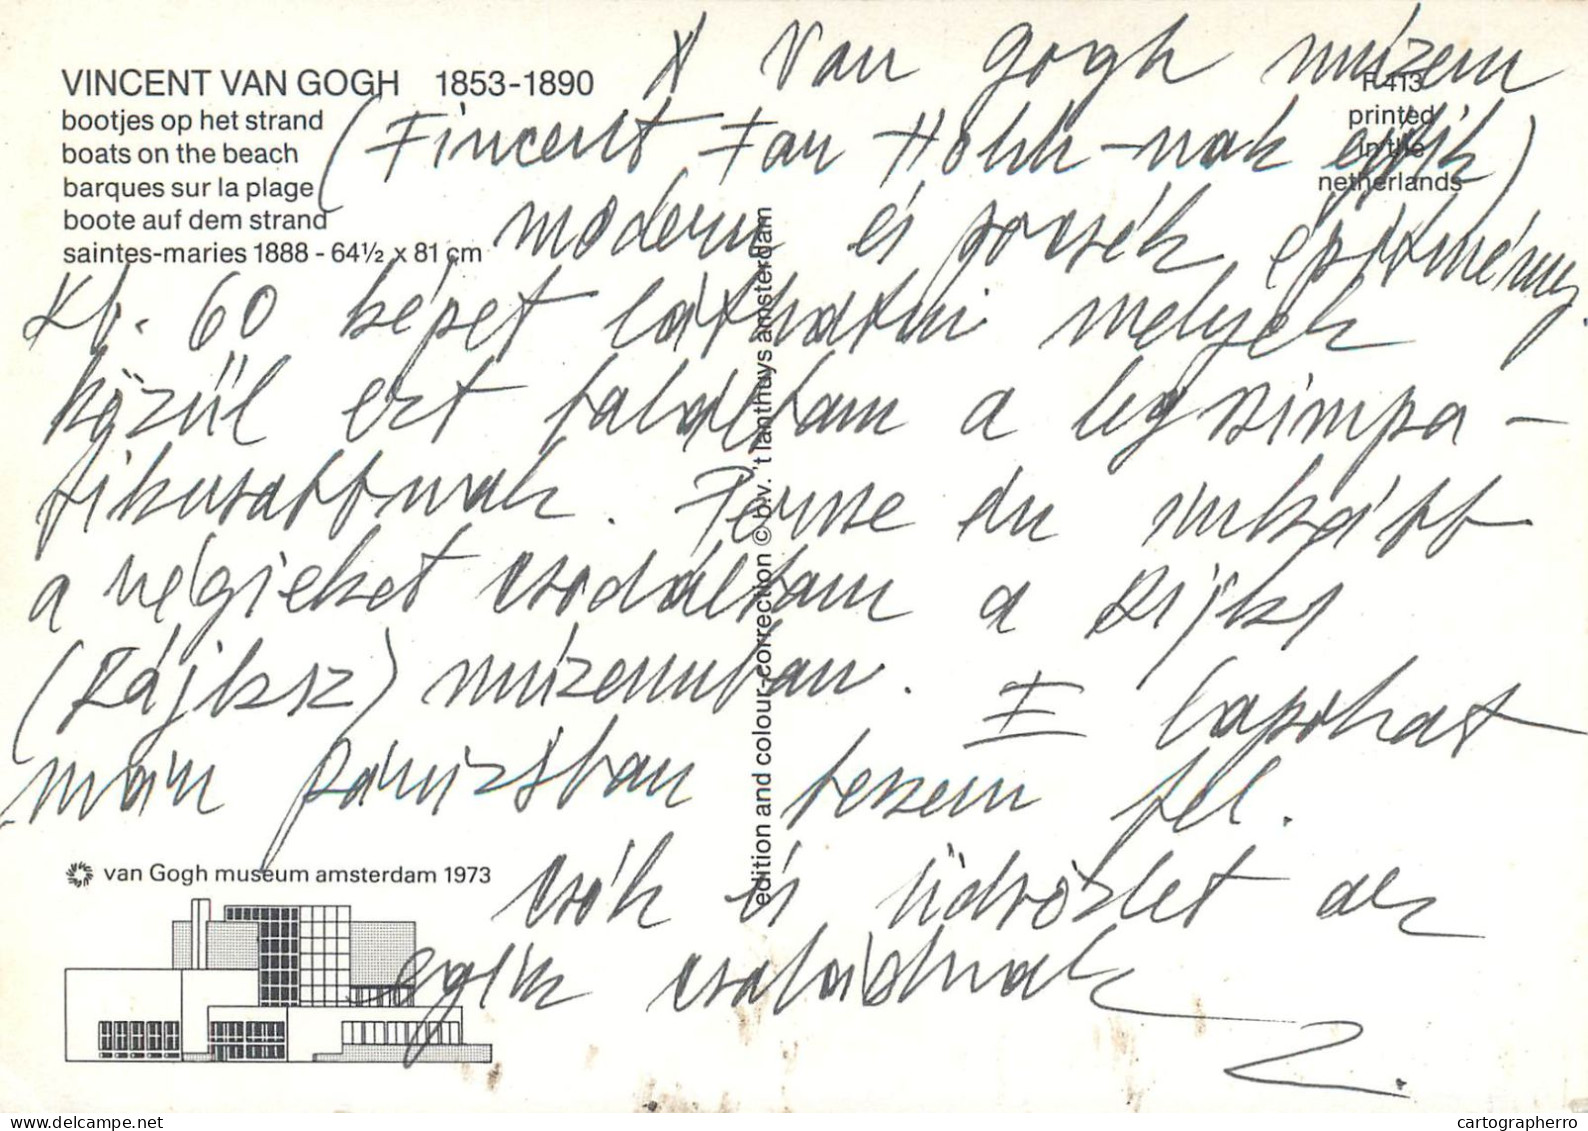 VINCENT VAN GOGH 1853-1890
bootjes op het strand
boats on the beach
barques sur la plage
boote auf dem strand
saintes-maries 1888 - 64½ x 81 cm
F 413
printed
in the
netherlands
A Van Gogh múzeum
(Fincent Fan Hohh-nak ejtik)
modern és jócskék építmény.
Kb. 60 képet láthatni melyek
közül ezt találtam a legszimpa-
tikusabbnak. Persze én inkább
a régieket csodáltam a Rijks
(Rájksz) múzeumban. E lapokat
már párizsban teszem fel.
Csók és üdvözlet az
egész családnak
Z.
edition and colour-correction © b.v. 't lanthuys amsterdam
van Gogh museum amsterdam 1973
cartographerro
oldthing.net